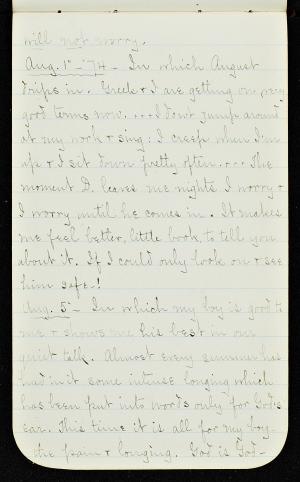 will not worry.
Aug. 1st - '74 - In which August
drifts in. Greek & I are getting on very
good terms now. ... I don't jump around
at my work & sing: I creep when I'm
up & I sit down pretty often. ... The
moment D. leaves me nights I worry &
I worry until he comes in. It makes
me feel better, little book, to tell you
about it. If I could only look on & see
him safe - !
Aug. 5 - In which my boy is good to
me & shows me his best in our
quiet talk. Almost every summer has
had in it some intense longing which
has been put into words only for God's
ear. This time it is all for my boy -
the pain & longing. God is God -